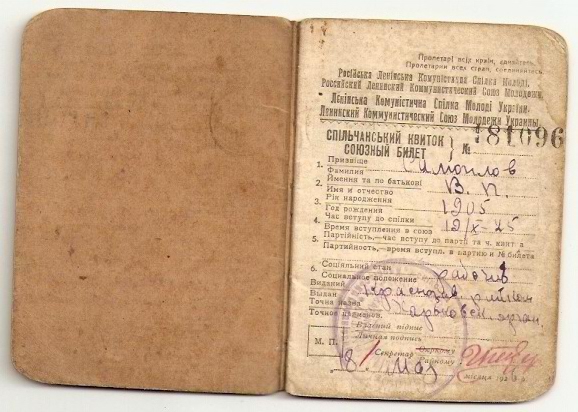 Пролетарі всіх країн, єднайтесь.
Пролетарии всех стран, соединяйтесь.
Російська Ленінська Комуністична Спілка Молоді.
Российский Ленинский Коммунистический Союз Молодежи.
Лєнінська Комуністична Спілка Молоді України.
Ленинский Коммунистический Союз Молодежи Украины.
СПІЛЬЧАНСЬКИЙ КВИТОК
СОЮЗНЫЙ БИЛЕТ } № 181096
1. Призвіще
Фамилия Самойлов
2. Ймення та по батькові
Имя и отчество В. П.
3. Рік народження
Год рождения 1905
4. Час вступу до спілки
Время вступления в союз 12/X-25
5. Партійність,—час вступу до партії та ч. квит а
Партийность,—время вступл. в партию и № билета
6. Соціяльний стан
Социальное положение рабочий
Виданий
Выдан Краснозав. райком
Точна назва
Точное наименов. Харьковск. орган.
Власний підпис
Личная подпись
М. П. Секретар Окркому
Райкому
8/ Май місяця 192